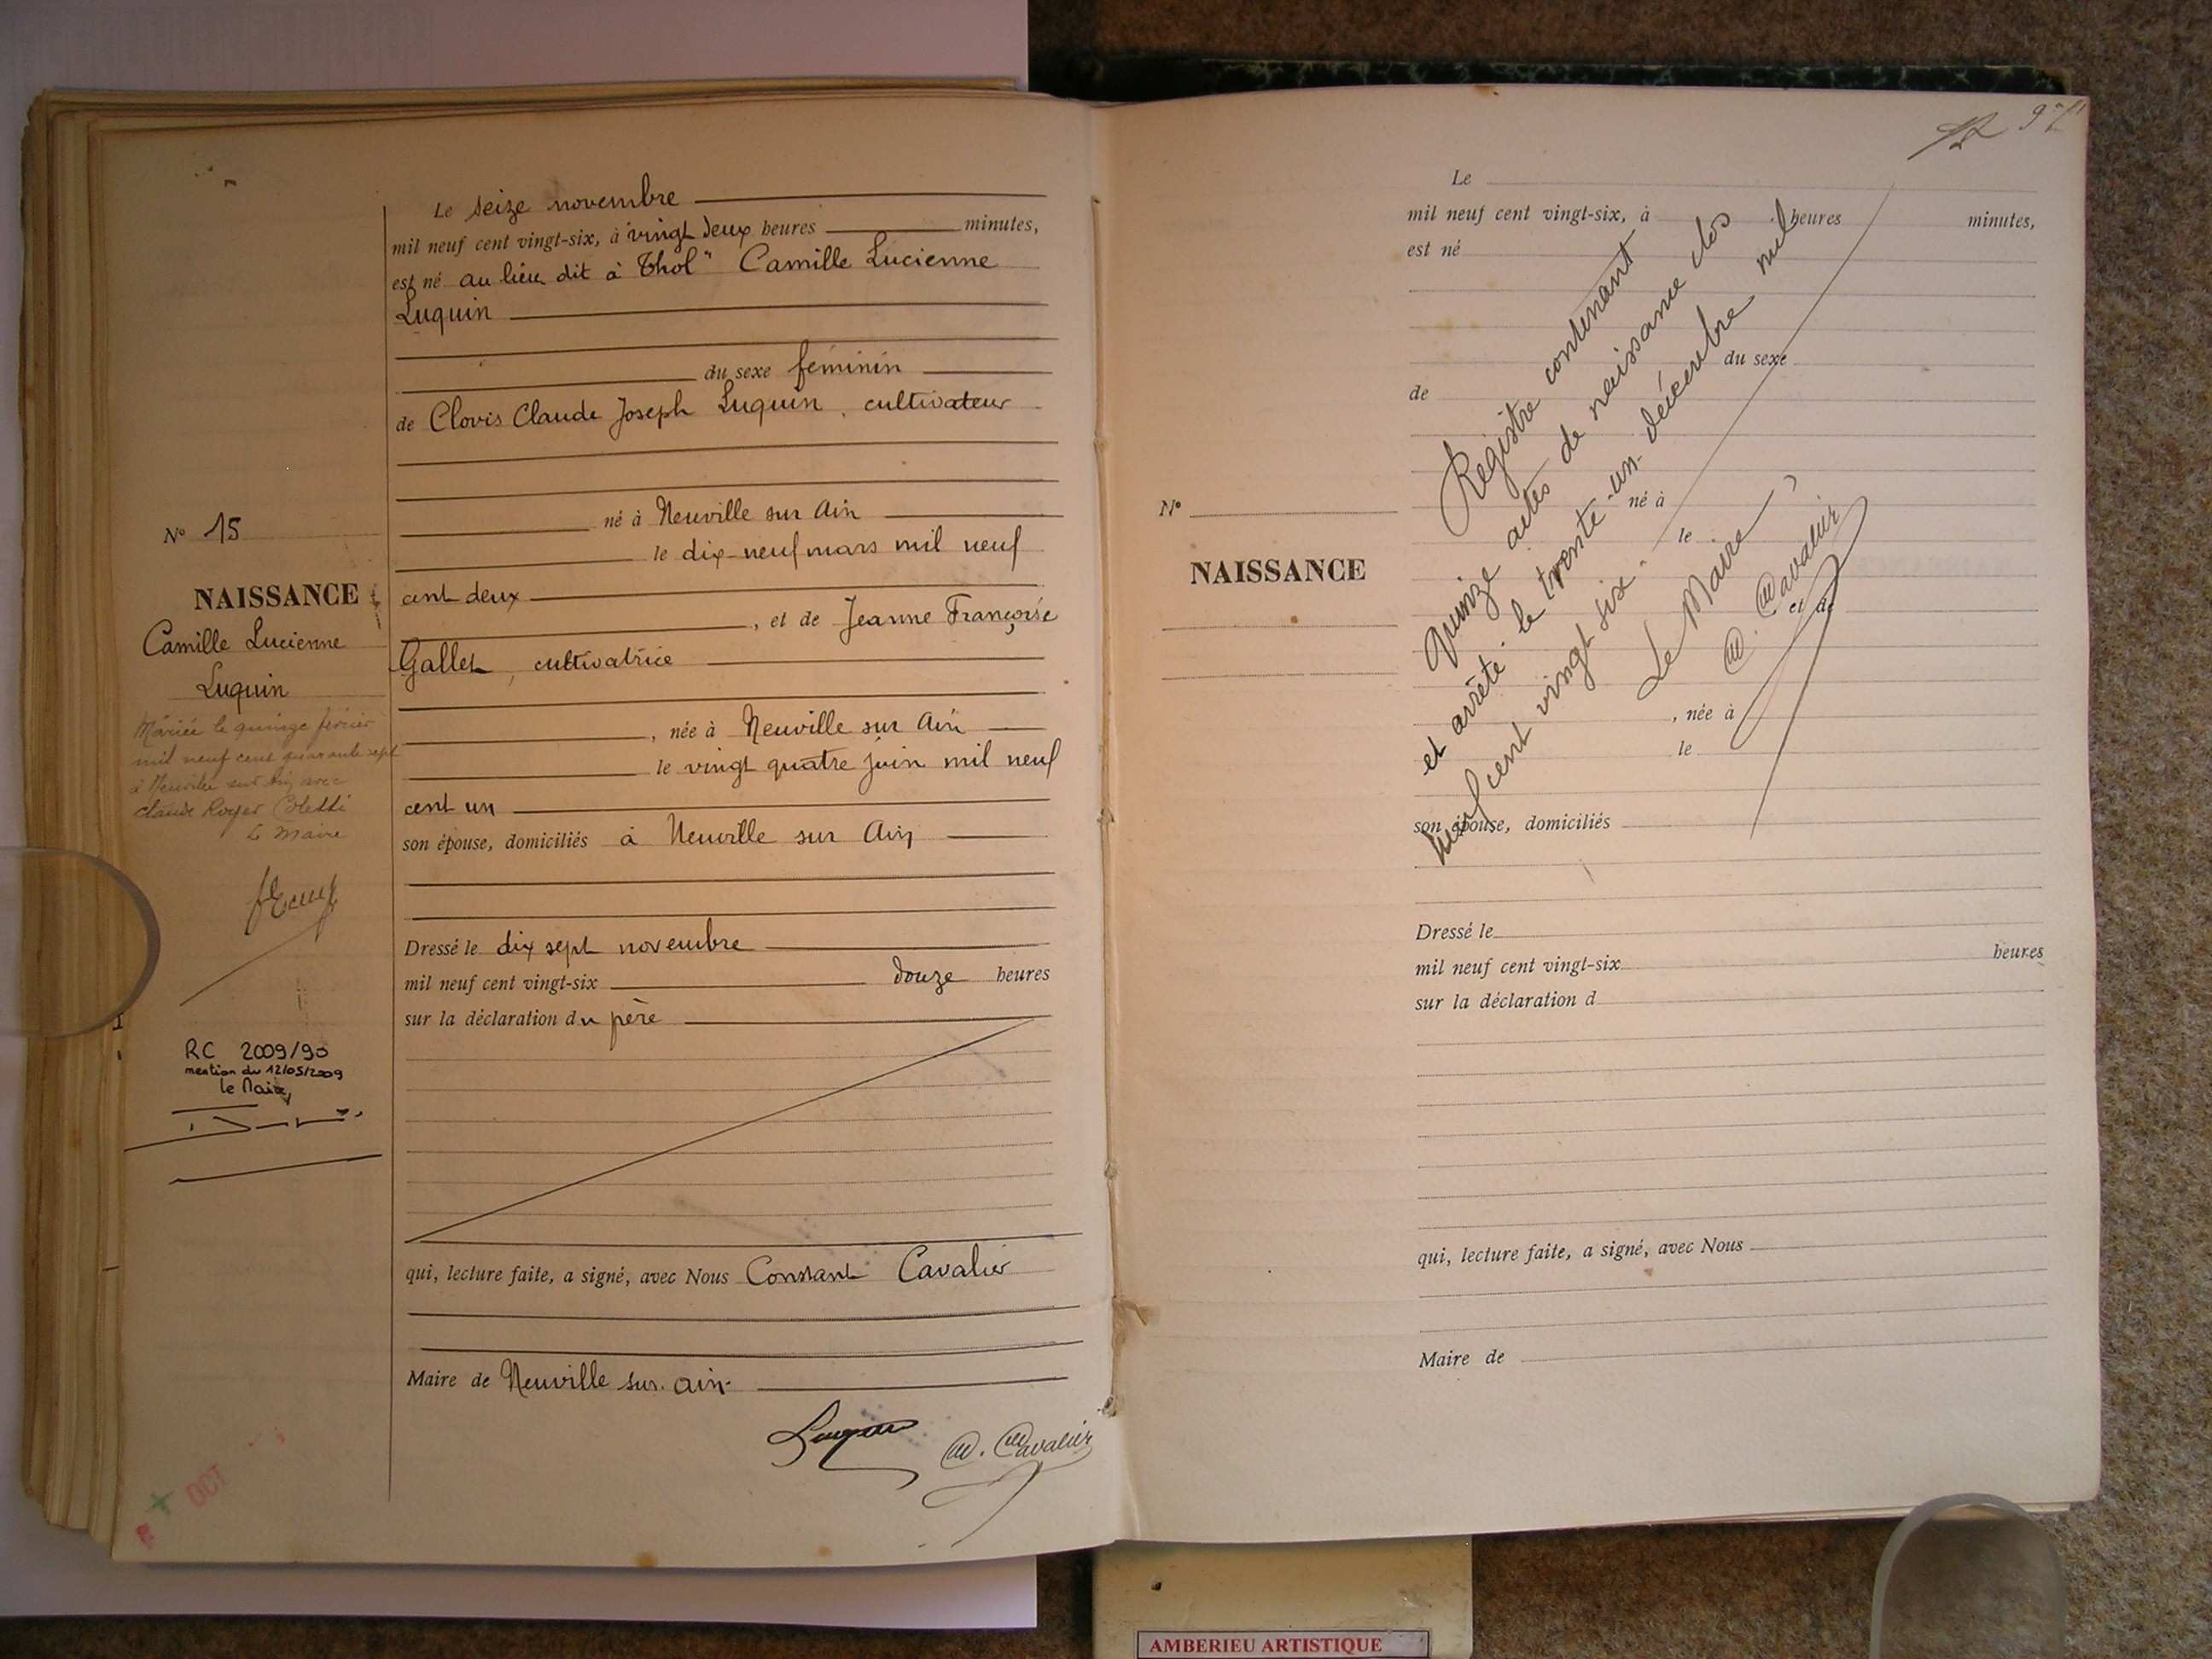 N° 15
NAISSANCE
Camille Lucienne
Luquin
Mariée le quinze février
mil neuf cent quarante sept
à Neuville sur Ain avec
Claude Roger
Le Maire
RC 2009/90
mention du 12/05/2009
le Maire
Le seize novembre
mil neuf cent vingt-six, à vingt deux heures minutes,
est né au lieu dit à Thol" Camille Lucienne
Luquin
du sexe féminin
de Clovis Claude Joseph Luquin, cultivateur
né à Neuville sur Ain
le dix-neuf mars mil neuf
cent deux
, et de Jeanne Françoise
Gallet, cultivatrice
, née à Neuville sur Ain
le vingt quatre juin mil neuf
cent un
son épouse, domiciliés à Neuville sur Ain
Dressé le dix sept novembre
mil neuf cent vingt-six douze heures
sur la déclaration du père
qui, lecture faite, a signé, avec Nous Constant Cavalier
Maire de Neuville sur-ain-
Luquin
C. Cavalier
OCT
97
Le
mil neuf cent vingt-six, à heures minutes,
est né
du sexe
de
né à
le
N°
NAISSANCE
et de
, née à
le
son épouse, domiciliés
Dressé le
mil neuf cent vingt-six heures
sur la déclaration d
qui, lecture faite, a signé, avec Nous
Maire de
Registre contenant
quinze actes de naissance clos
et arrêté le trente-un décembre mil
neuf cent vingt six.
Le Maire
C. Cavalier
AMBERIEU ARTISTIQUE